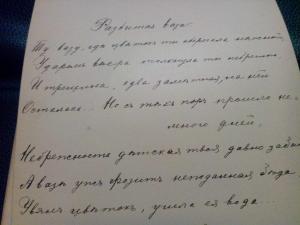 Разбитая ваза.
Ту вазу, где цветокъ ты сберегла нѣжной,
Ударомъ вѣера толкнула ты небрежно,
И трещина, едва замѣтная, на ней
Осталась... Но съ тѣхъ поръ прошло не-
много дней,
Небрежность дѣтская твоя давно забы
А вазѣ ужъ грозитъ нежданная бѣда
Увялъ цвѣтокъ, ушла ея вода...